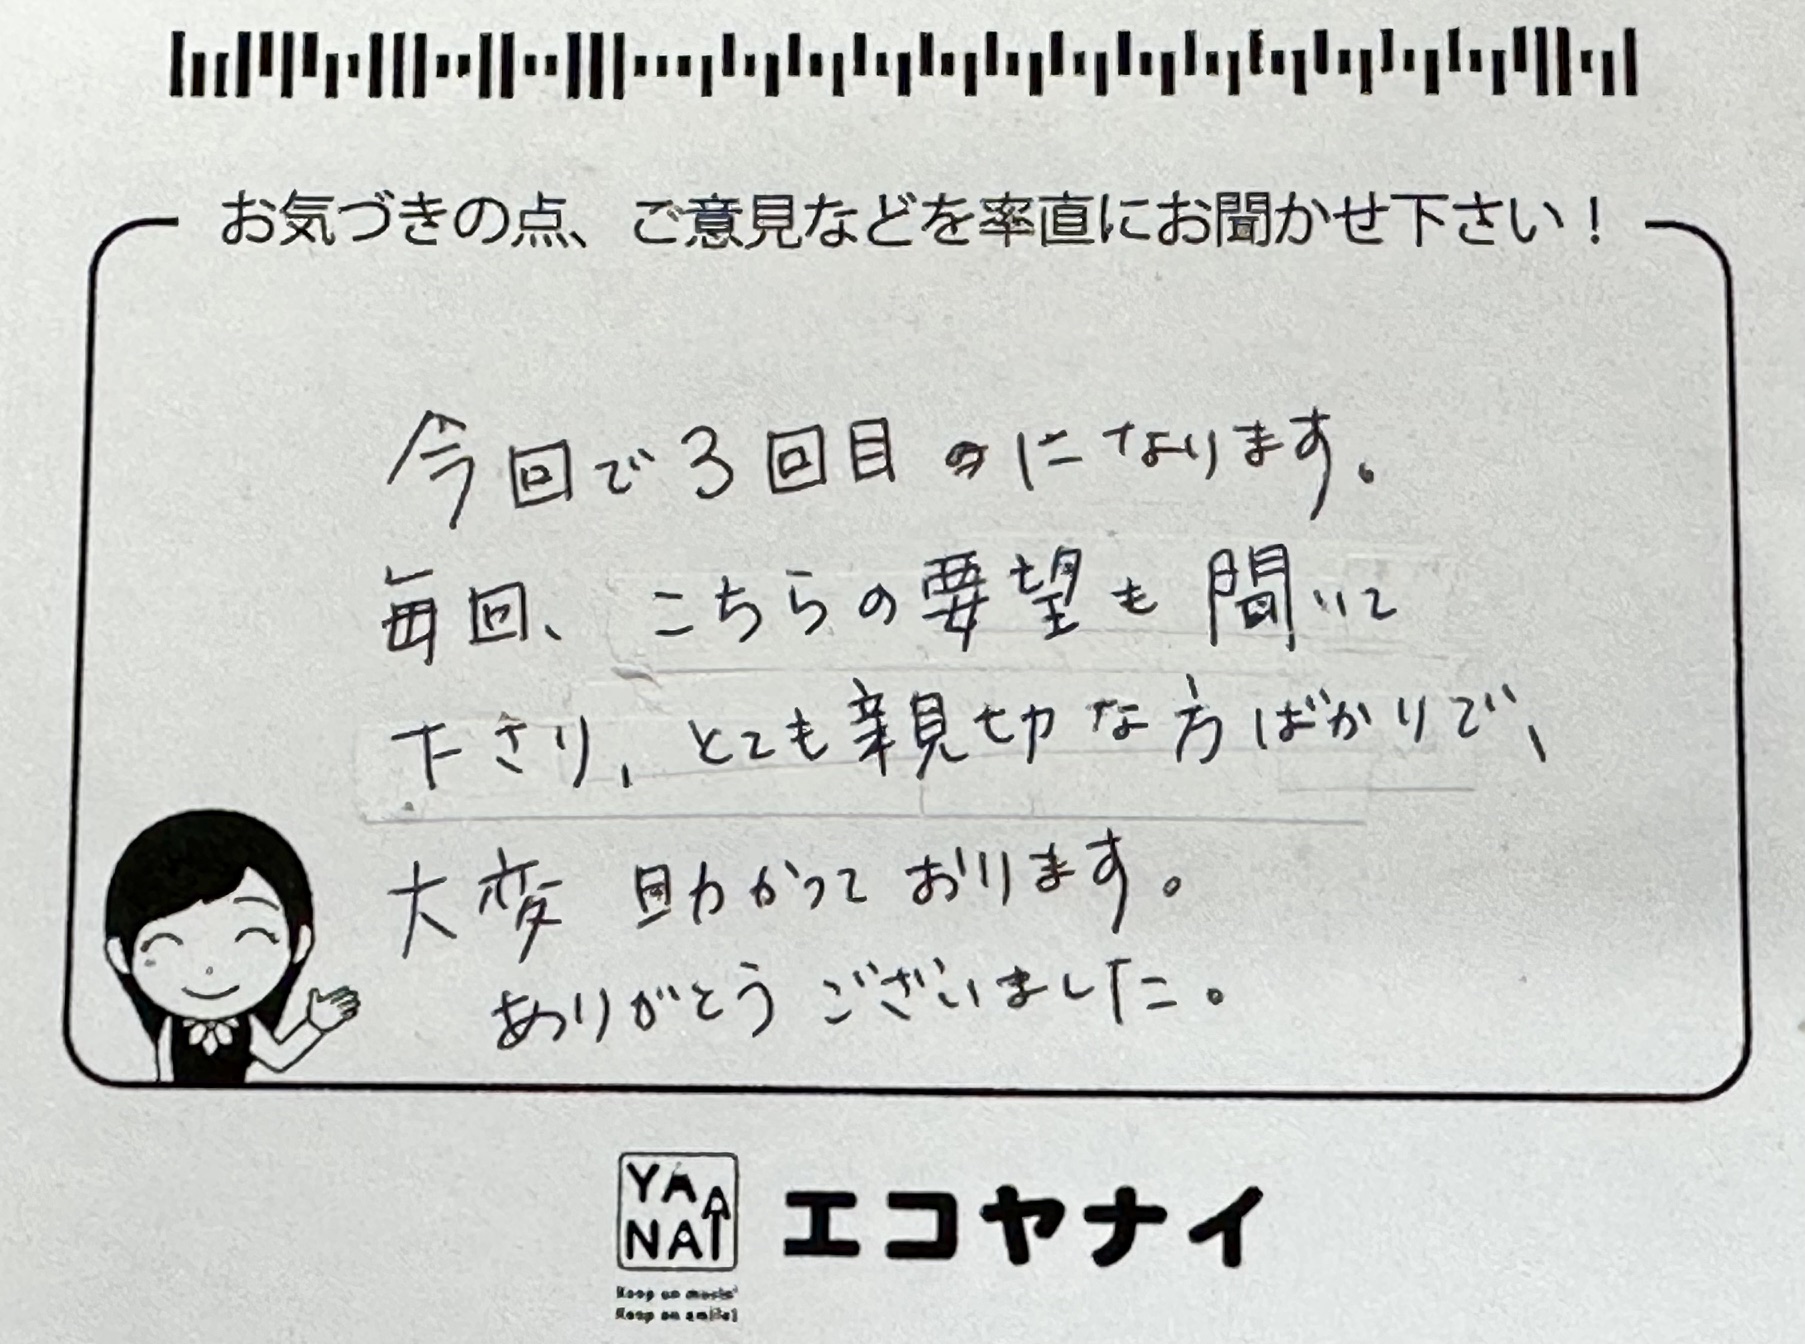 お気づきの点、ご意見などを率直にお聞かせ下さい！
今回で3回目になります。
毎回、こちらの要望も聞いて
下さり、とても親切な方ばかりで、
大変助かっております。
ありがとうございました。
YANAI
エコヤナイ
Keep on movin'
Keep on smile!